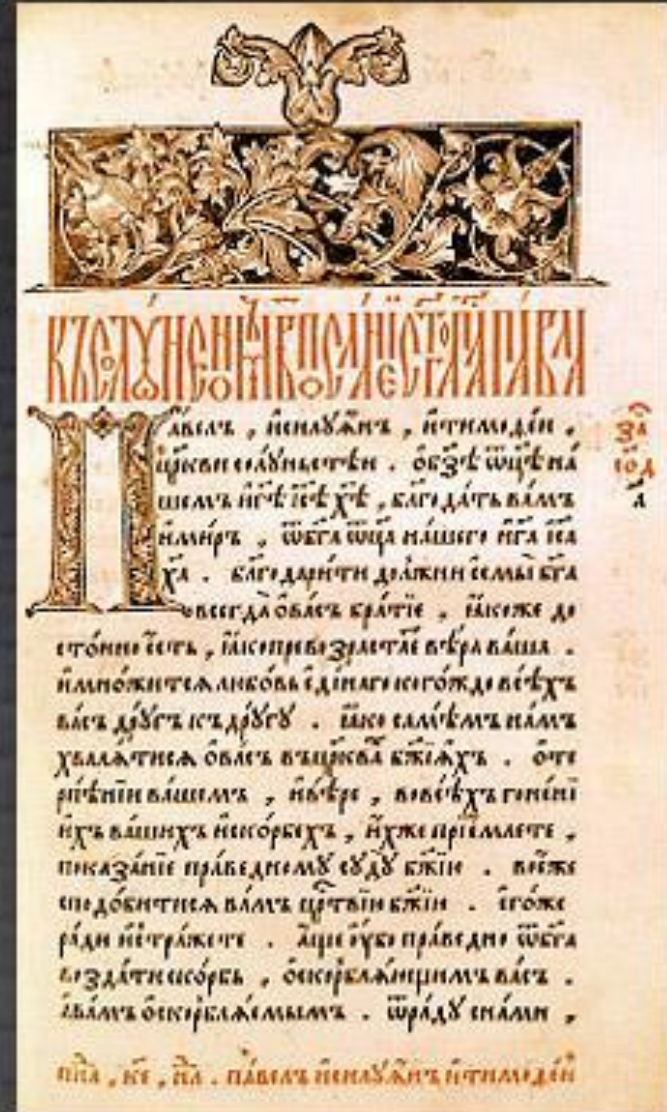 къ солꙋнеѡмъ в посланїе ст҃го ап҃ла павла
Павелъ , и҆силꙋѧ҆нъ , и҆тимоѳеи ,
цр҃кви солꙋньстѣи . ѻ҆бз҃ѣ ѿц҃ѣ на
шемъ и҆г҃ѣ і҆с҃ѣ х҃ѣ , бл҃года́ть ва́мъ
и҆ми́ръ , ѿбг҃а ѿц҃а на́шего и҆г҃а і҆с҃а
х҃а . бл҃годари́ти до́лжни есмы̀ бг҃а
всегда̀ ѻ҆ва́съ бра́тїе , ꙗ҆́коже до
сто́ино є҆́сть , ꙗ҆́ко превозраста́е вѣ́ра ва́ша .
и҆мно́жится любо́вь є҆ди́наго кого́ждо всѣ́хъ
ва́съ дрꙋ́гъ къдрꙋ́гꙋ . ꙗ҆́ко самѣ́мъ на́мъ
хвали́тися ѻ҆ва́съ въцр҃ква бж҃їѧхъ . ѻ҆те
рпѣ́нїи ва́шемъ , и҆вѣ́ре , вовсѣ́хъ гоне́нї
и҆хъ ва́шихъ и҆ско́рбехъ , и҆́хже прїе́млете ,
показа́нїе пра́веднομꙋ сꙋдꙋ̀ бж҃їю . воє҆́же
сподо́битися ва́мъ црⷭ҇твїи бж҃їи . є҆го́же
ра́ди и҆стра́жете . а҆́ще ᲂу҆бо пра́ведно ѿбг҃а
возда́ти ско́рбь , ѻ҆скорблѧ́ющимъ ва́съ .
ава́мъ ѻ҆скорблѧ́емымъ . ѿра́дꙋ сна́ми ,
за
сод
а
нл҃а , к҃е , н҃л . па́велъ и҆силꙋѧ҆нъ и҆тимоѳеи